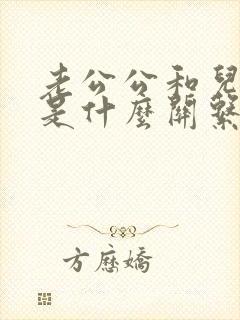 老公公和兒
是什麼關繫
方應嬌